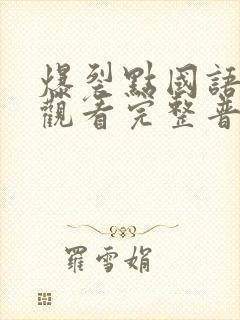 爆裂點國語
觀看完整普
羅雪娟